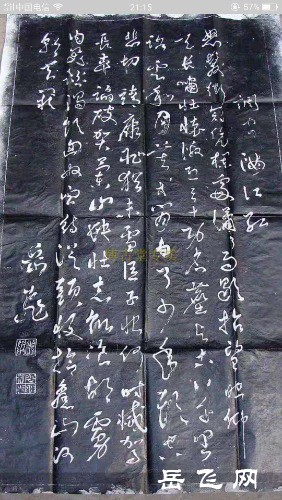 中国电信 21:15 57%
调寄 满江红
怒髮衝冠凭栏處瀟瀟雨歇抬望眼仰
天长啸壮怀激烈三十功名塵与土八千里
路雲和月莫等闲白了少年头空
悲切靖康耻犹未雪臣子恨何时滅驾
长车踏破贺兰山缺壮志飢湌胡虏
肉笑谈渴饮匈奴血待从头收拾舊山河
朝天阙
岳飛
岳飞网